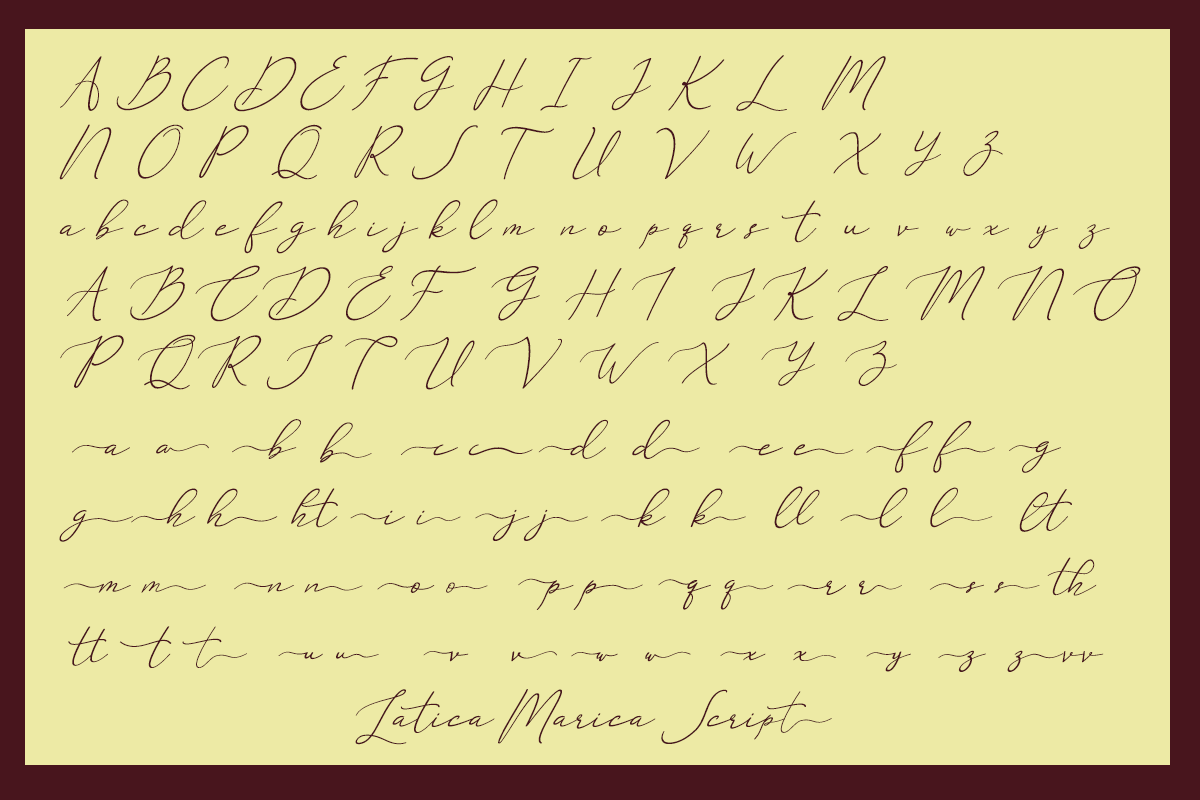 A B C D E F G H I J K L M
N O P Q R S T U V W X Y Z
a b c d e f g h i j k l m n o p q r s t u v w x y z
A B C D E F G H I J K L M N O
P Q R S T U V W X Y Z
a a b b c c d d e e f f g
g h h ht i i j j k k ll l l lt
m m n n o o p p q q r r s s th
tt t t u u v v w w x x y z z vv
Latica Marica Script